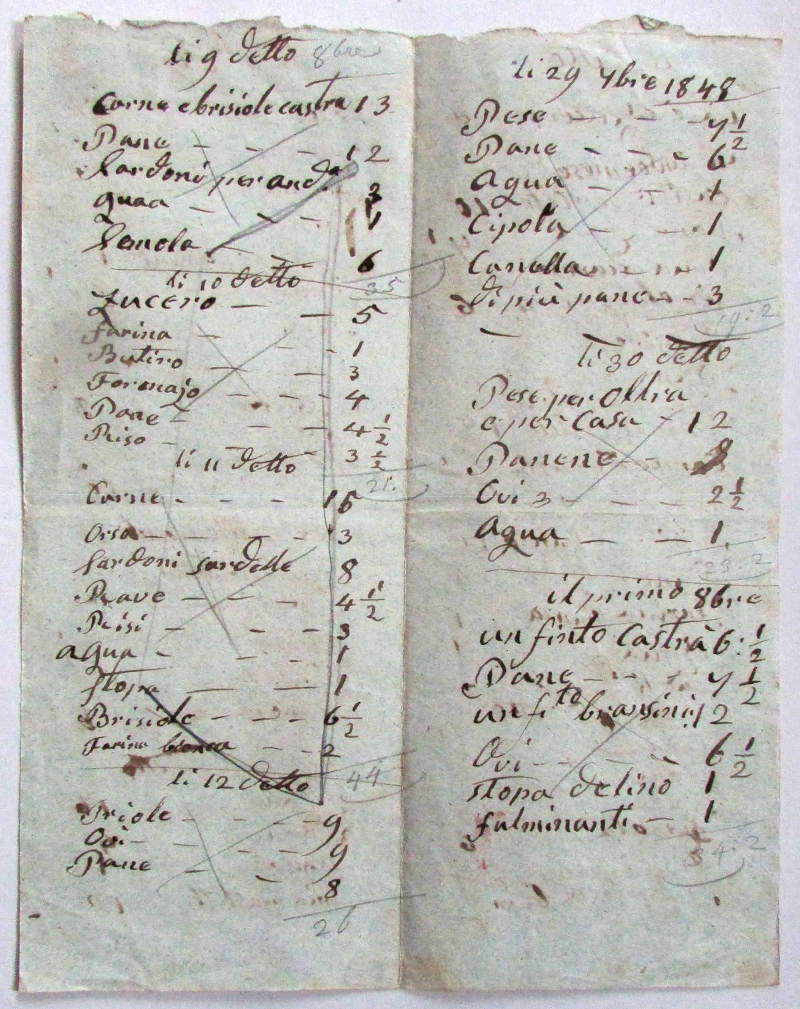 li 9 detto 8bre
Carne e brisiole castra 13
Pane - - - 12
Sardoni per and.a 2
Aqua - - - 1
Semola - - 6
35
li 10 detto
Zucero - - 5
farina - - - 1
Butiro - - - 3
Formajo - - - 4
Pane - - - 4 1/2
Riso - 3 1/2
21.
li 11 detto
Carne - - - 15
Orso - - - 3
Sardoni sardelle 8
Rave - - - 4 1/2
Risi - - - 3
aqua - - - 1
stopa - - 1
Brisiole - - - 6 1/2
Farina bianca - - 2
44
li 12 detto
Priole - - - 9
Ovi - - - 9
Pane - - 8
26
li 29 7bre 1848
Pese - - - 7 1/2
Pane - - - 6
aqua - - - 1
Cipola - - 1
Canella - - 1
di più pane - - 3
19:2
li 30 detto
Pese per Oltra
e per Casa - 12
Panene - - 8
Ovi 3 - - 2 1/2
aqua - - - 1
23:2
il primo 8bre
un finto Castrà 6: 1/2
Pane - - - 7 1/2
un fi.to 12
Ovi - - - 6 1/2
stopa de lino 1
fulminanti - 1
34:2